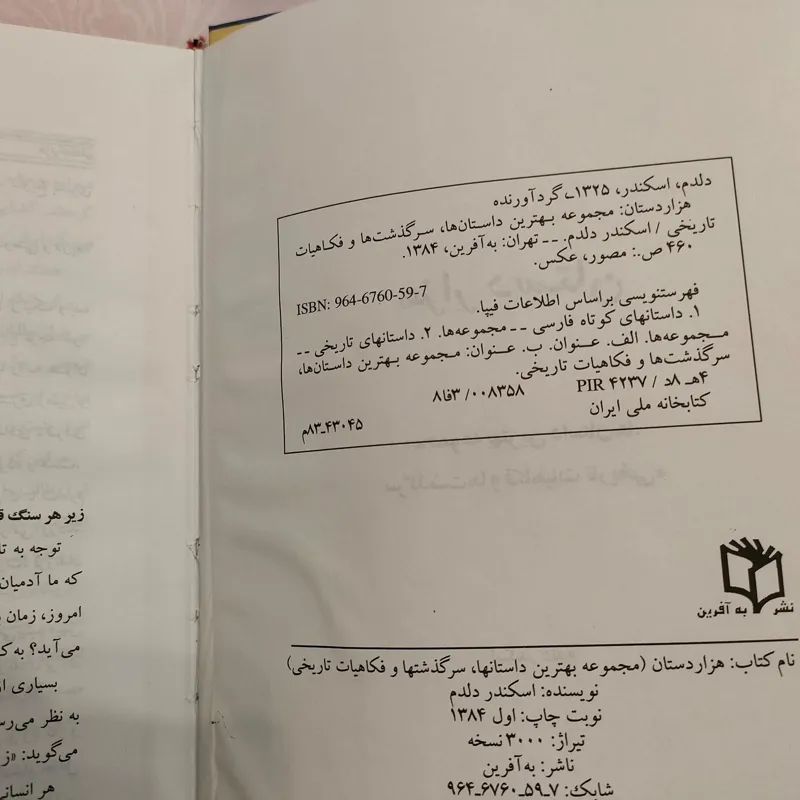 دلدم، اسکندر، ۱۳۲۵ـ، گردآورنده
هزاردستان: مجموعه بهترین داستان‌ها، سرگذشت‌ها و فکاهیات
تاریخی / اسکندر دلدم. ـ ـ تهران: به‌آفرین، ۱۳۸۴.
۴۶۰ ص.: مصور، عکس.
ISBN: 964-6760-59-7
فهرستنویسی براساس اطلاعات فیپا.
۱. داستانهای کوتاه فارسی ـ ـ مجموعه‌ها. ۲. داستانهای تاریخی ـ ـ
مجموعه‌ها. الف. عنوان. ب. عنوان: مجموعه بهترین داستان‌ها،
سرگذشت‌ها و فکاهیات تاریخی.
۴هـ ۸د / PIR ۴۲۳۷
۸فا۳ /۰۰۸۳۵۸
کتابخانه ملی ایران
۸۳ـ۴۳۰۴۵م
نشر به آفرین
نام کتاب: هزاردستان (مجموعه بهترین داستانها، سرگذشتها و فکاهیات تاریخی)
نویسنده: اسکندر دلدم
نوبت چاپ: اول ۱۳۸۴
تیراژ: ۳۰۰۰ نسخه
ناشر: به‌آفرین
شابک: ۷ـ۵۹ـ۶۷۶۰ـ۹۶۴
زیر هر سنگ
توجه به
که ما آدمیان
امروز، زمان
می‌آید؟
بسیاری
به نظر
می‌گوید:
هر